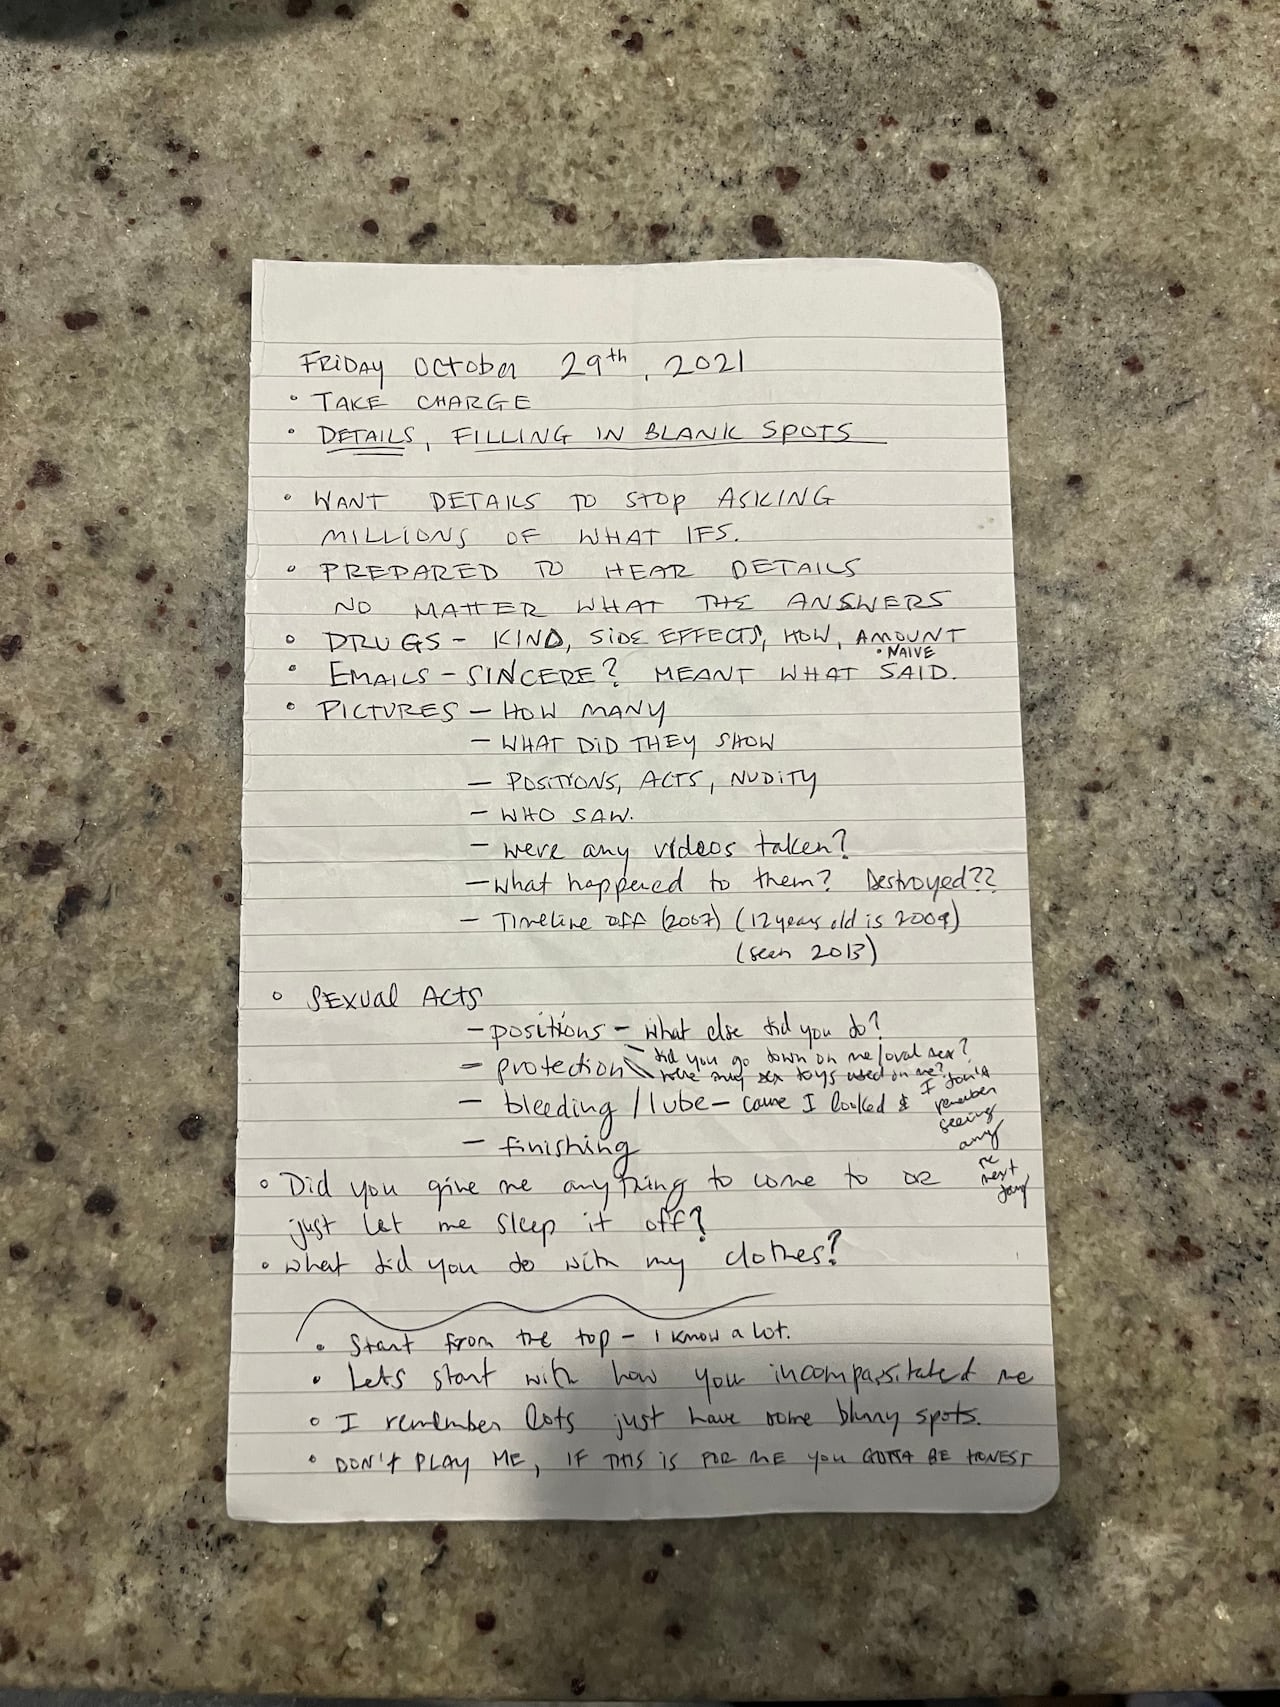 FRIDAY OCTOBER 29th, 2021
• TAKE CHARGE
• DETAILS, FILLING IN BLANK SPOTS
• WANT DETAILS TO STOP ASKING
MILLIONS OF WHAT IFS.
• PREPARED TO HEAR DETAILS
NO MATTER WHAT THE ANSWERS
• DRUGS - KIND, SIDE EFFECTS, HOW, AMOUNT
• NAIVE
• EMAILS - SINCERE? MEANT WHAT SAID.
• PICTURES - HOW MANY
- WHAT DID THEY SHOW
- POSITIONS, ACTS, NUDITY
- WHO SAW.
- were any videos taken?
- what happened to them? Destroyed??
- Timeline off (2007) (12 years old is 2009)
(seen 2013)
• SEXUAL ACTS
- positions - what else did you do?
- protection did you go down on me/oral sex?
were any sex toys used on me?
- bleeding / lube - cause I looked & I don't
remember
seeing
any
next
day
- finishing
• Did you give me anything to come to OR
just let me sleep it off?
• what did you do with my clothes?
• Start from the top - I know a lot.
• Lets start with how you incompassitated me
• I remember lots just have some blurry spots.
• DON'T PLAY ME, IF THIS IS FOR ME YOU GOTTA BE HONEST